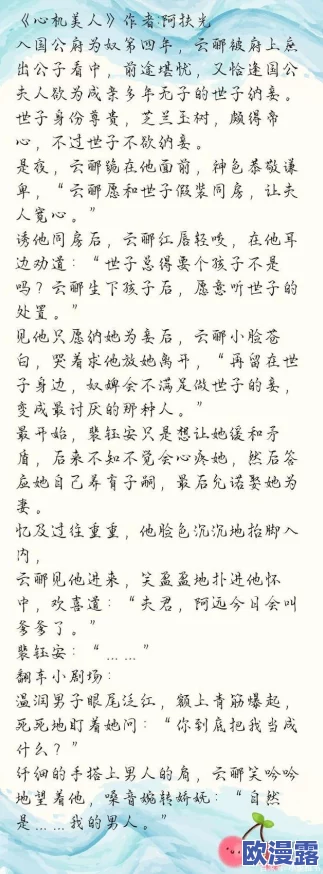 《心机美人》作者:阿扶光
入国公府为奴第四年，云郦被府上庶
出公子看中，前途堪忧，又恰逢国公
夫人欲为成亲多年无子的世子纳妾。
世子身份尊贵，芝兰玉树，颇得帝
心，不过世子不欲纳妾。
是夜，云郦跪在他面前，神色恭敬谦
卑，“云郦愿和世子假装同房，让夫
人宽心。”
诱他同房后，云郦红唇轻咬，在他耳
边劝道：“世子总得要个孩子不是
吗？云郦生下孩子后，愿意听世子的
处置。”
见他只愿纳她为妾后，云郦小脸苍
白，哭着求他放她离开，“再留在世
子身边，奴婢会不满足做世子的妾，
变成最讨厌的那种人。”
最开始，裴钰安只是想让她缓和矛
盾，后来不知不觉会心疼她，然后答
应她自己养育子嗣，最后允诺娶她为
妻。
忆及过往重重，他脸色沉沉地抬脚入
内，
云郦见他进来，笑盈盈地扑进他怀
中，欢喜道：“夫君，阿远今日会叫
爹爹了。”
裴钰安：“……”
翻车小剧场：
温润男子眼尾泛红，额上青筋爆起，
死死地盯着她问：“你到底把我当成
什么？”
纤细的手搭上男人的肩，云郦笑吟吟
地望着他，嗓音婉转娇妩：“自然
是……我的男人。”
欧漫露